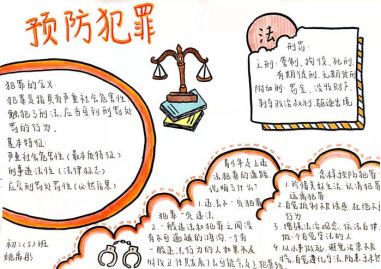 预防犯罪
犯罪的含义:
犯罪是指具有严重社会危害性
触犯了刑法,应当受到刑罚处
罚的行为.
基本特征:
严重社会危害性(最本质特征)
刑事违法性(法律标志)
应受刑罚处罚性(必然后果)
初二(3)班
法
刑罚:
主刑:管制、拘役、死刑、
有期徒刑、无期徒刑
附加刑:罚金、没收财产、
剥夺政治权利、驱逐出境
青少年走上违
法犯罪的道路
说明了什么?
1.违法不一定犯罪
犯罪一定违法
2.一般违法和犯罪之间没
有不可逾越的鸿沟,
一般违法行为的人如果不及
怎样预防犯罪
1.珍惜美好生活,认清犯罪
危害
2.
行为
3.增强法治观念,依法自律
做一个自觉守法的人
4.从小事做起,避免沾染不良